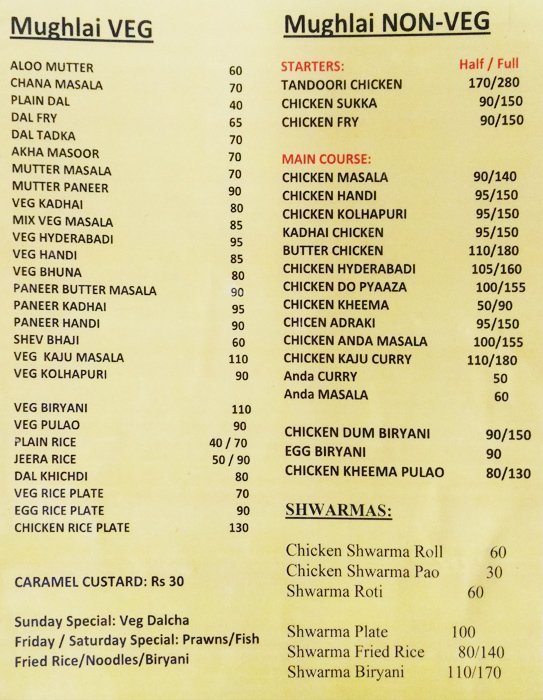 Mughlai VEG
ALOO MUTTER 60
CHANA MASALA 70
PLAIN DAL 40
DAL FRY 65
DAL TADKA 70
AKHA MASOOR 70
MUTTER MASALA 70
MUTTER PANEER 90
VEG KADHAI 80
MIX VEG MASALA 85
VEG HYDERABADI 95
VEG HANDI 85
VEG BHUNA 80
PANEER BUTTER MASALA 90
PANEER KADHAI 95
PANEER HANDI 90
SHEV BHAJI 60
VEG KAJU MASALA 110
VEG KOLHAPURI 90
VEG BIRYANI 110
VEG PULAO 90
PLAIN RICE 40 / 70
JEERA RICE 50 / 90
DAL KHICHDI 80
VEG RICE PLATE 70
EGG RICE PLATE 90
CHICKEN RICE PLATE 130
CARAMEL CUSTARD: Rs 30
Sunday Special: Veg Dalcha
Friday / Saturday Special: Prawns/Fish
Fried Rice/Noodles/Biryani
Mughlai NON-VEG
STARTERS: Half / Full
TANDOORI CHICKEN 170/280
CHICKEN SUKKA 90/150
CHICKEN FRY 90/150
MAIN COURSE:
CHICKEN MASALA 90/140
CHICKEN HANDI 95/150
CHICKEN KOLHAPURI 95/150
KADHAI CHICKEN 95/150
BUTTER CHICKEN 110/180
CHICKEN HYDERABADI 105/160
CHICKEN DO PYAAZA 100/155
CHICKEN KHEEMA 50/90
CHICEN ADRAKI 95/150
CHICKEN ANDA MASALA 100/155
CHICKEN KAJU CURRY 110/180
Anda CURRY 50
Anda MASALA 60
CHICKEN DUM BIRYANI 90/150
EGG BIRYANI 90
CHICKEN KHEEMA PULAO 80/130
SHWARMAS:
Chicken Shwarma Roll 60
Chicken Shwarma Pao 30
Shwarma Roti 60
Shwarma Plate 100
Shwarma Fried Rice 80/140
Shwarma Biryani 110/170